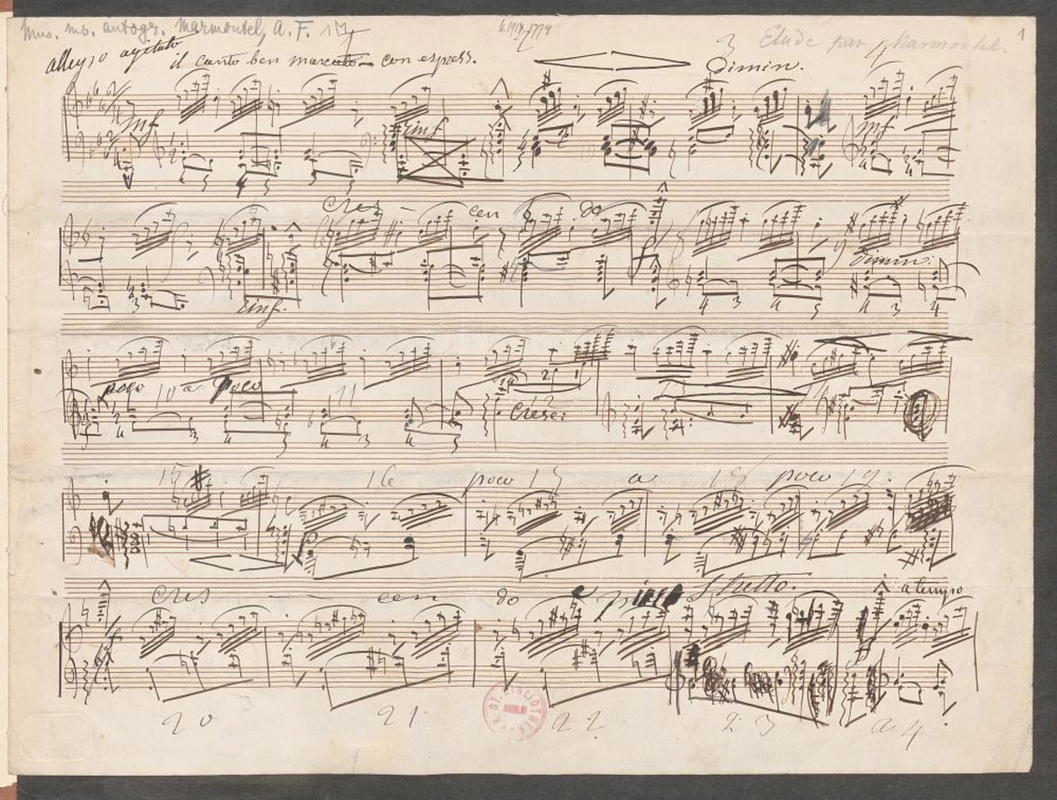 Mus. ms. autogr. Marmontel, A. F. 17
Etude par Marmontel. 1
allegro agitato il canto ben marcato — con espress.
dimin.
mf
inf
mf
cres - cen do
inf.
dimin:
4 3 4 3 4 3
poco 10 a poco 11
cresc:
4 3 4 3
15 16 poco 17 a 18 poco 19
cres — cen do e più stretto. a tempo
20 21 22 23 24